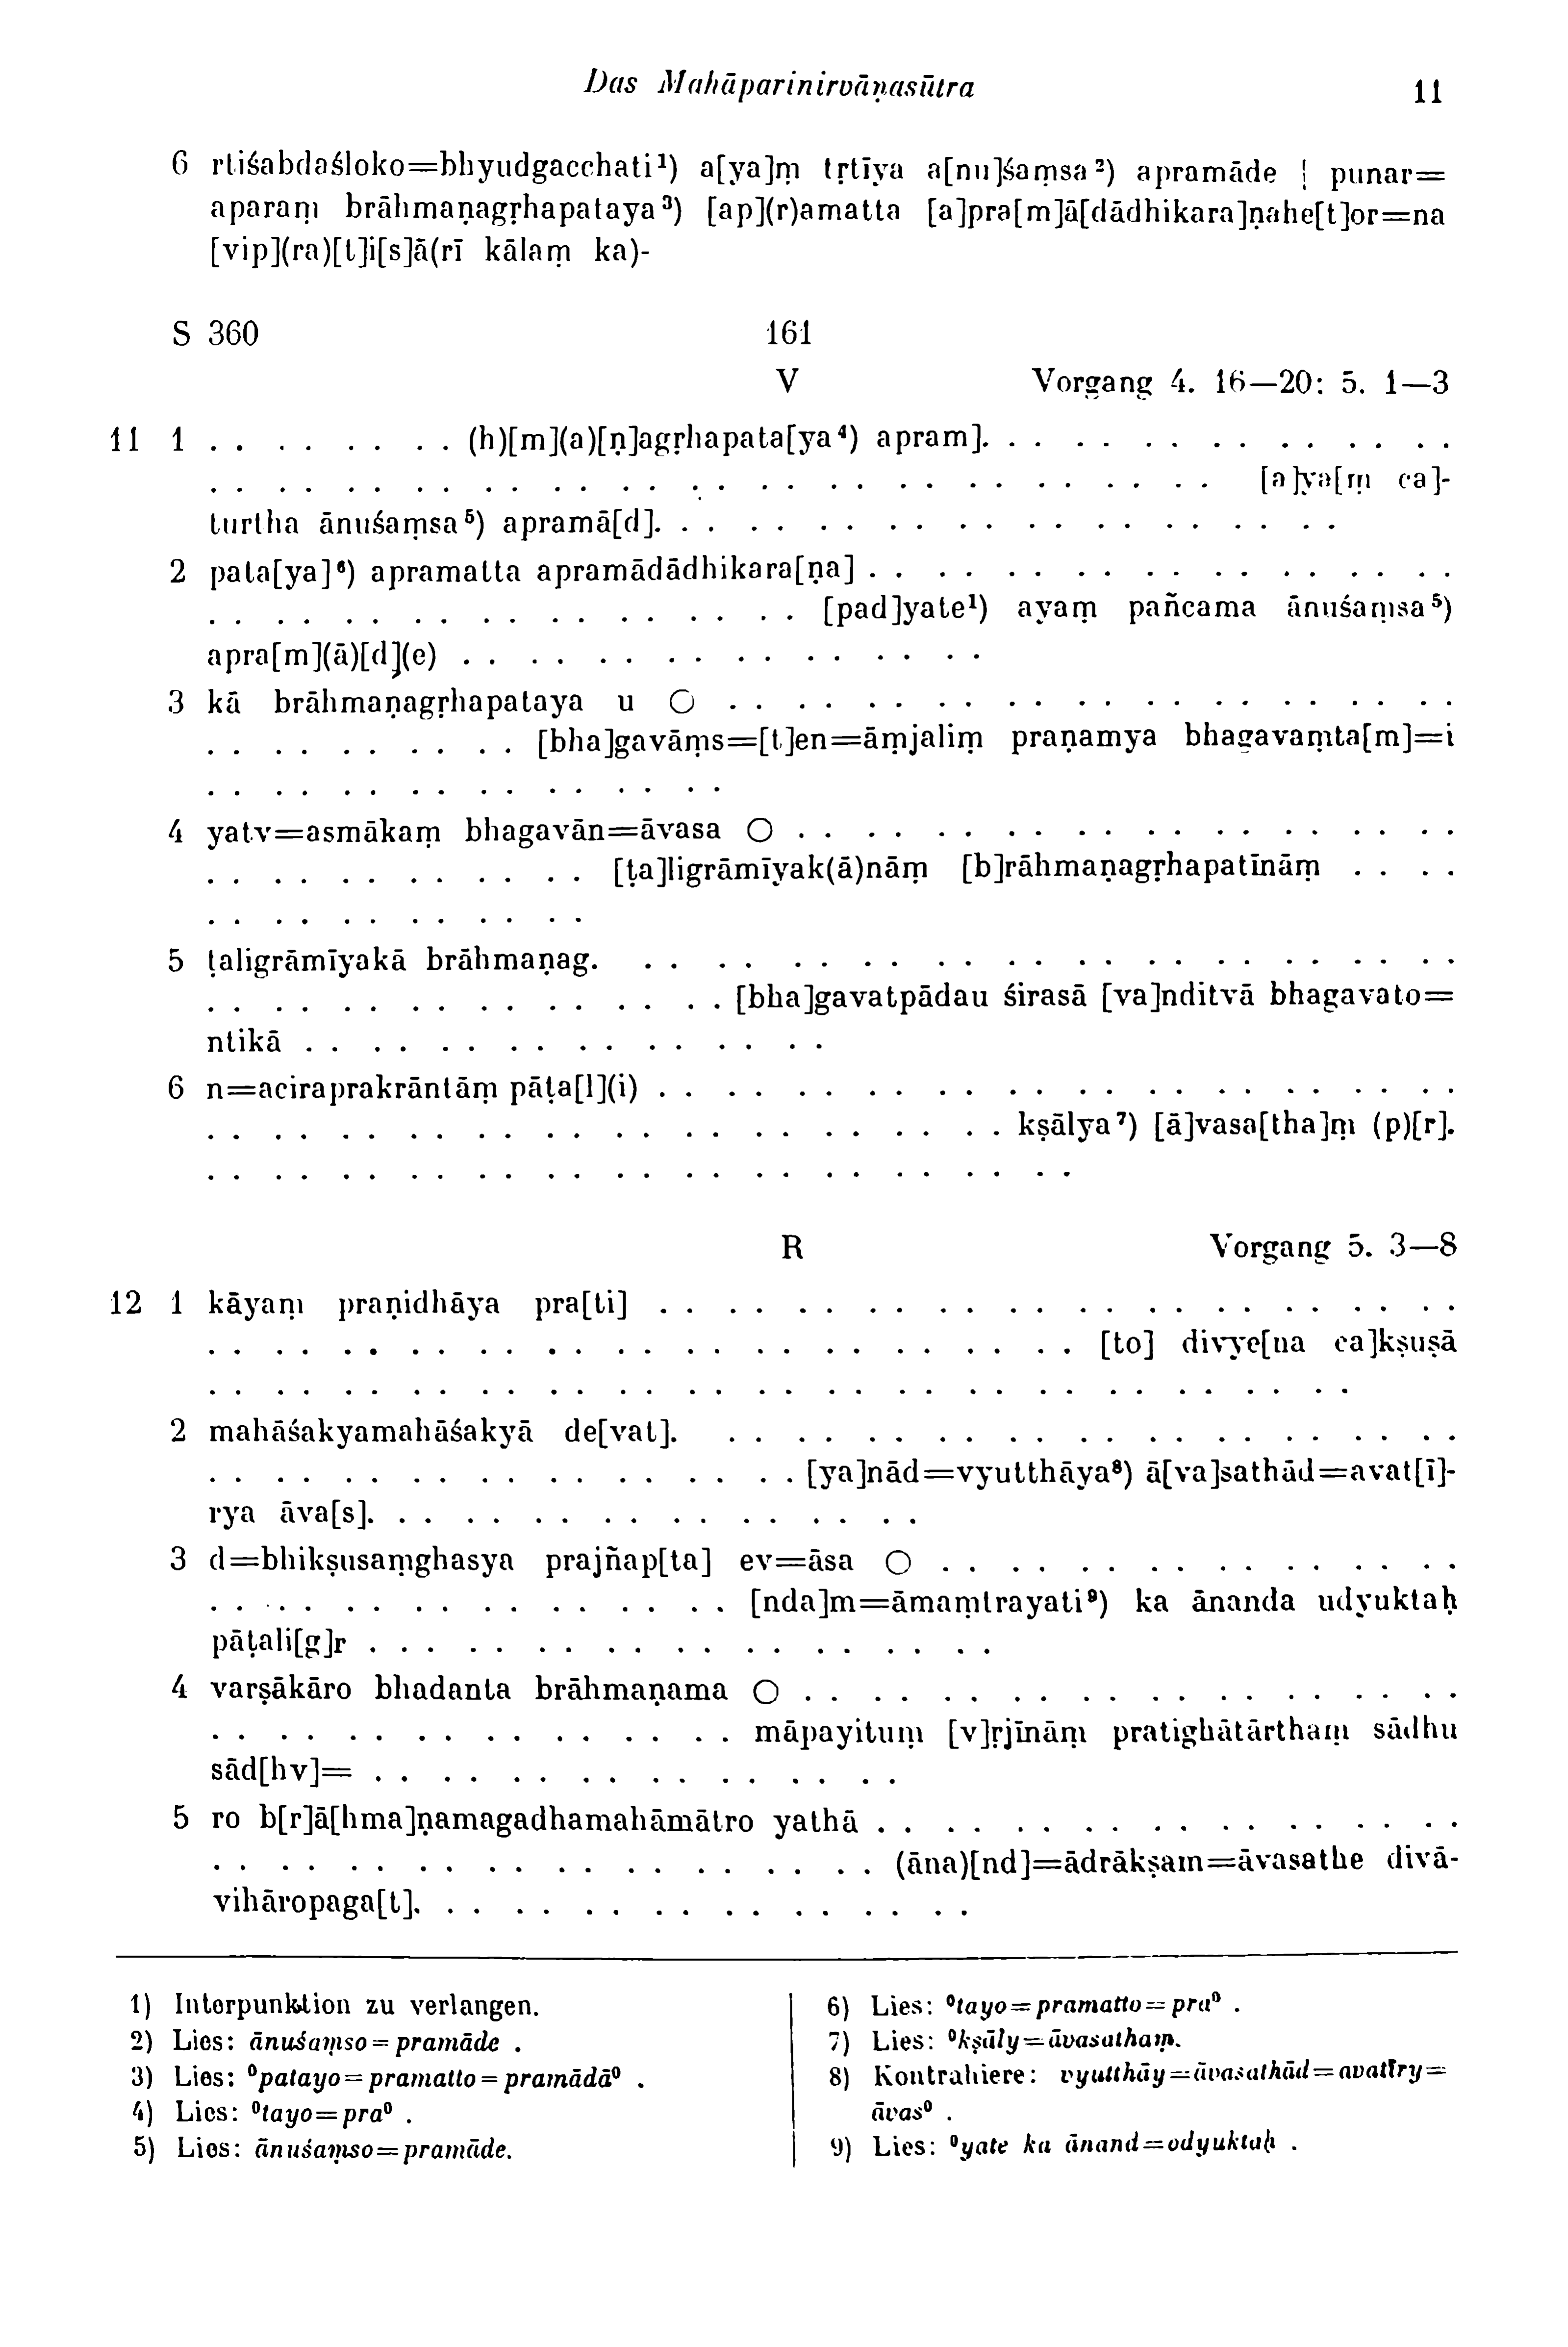 Das Mahāparinirvāṇasūtra 11
6 rtiśabdaśloko=bhyudgacchati¹) a[ya]ṃ tṛtīya a[nu]śaṃsa²) apramāde ¦ punar=
aparaṃ brāhmaṇagṛhapataya³) [ap](r)amatta [a]pra[m]ā[dādhikara]ṇahe[t]or=na
[vip](ra)[t]i[s]ā(rī kālaṃ ka)-
S 360 161
V Vorgang 4. 16—20: 5. 1—3
11 1 . . . . . . . . (h)[m](a)[ṇ]agṛhapata[ya⁴) apram]. . . . . . . . . . . . . . .
. . . . . . . . . . . . . . . . . . . . . . . . . . . . . . [a]ya[ṃ ca]-
turtha ānuśaṃsa⁵) apramā[d]. . . . . . . . . . . . . . . . . . . . .
2 pata[ya]⁶) apramatta apramādādhikara[ṇa] . . . . . . . . . . . . . . . . . .
. . . . . . . . . . . . . . . . . . [pad]yate¹) ayaṃ pañcama ānuśaṃsa⁵)
apra[m](ā)[d](e) . . . . . . . . . . . . . . . .
3 kā brāhmaṇagṛhapataya u ○ . . . . . . . . . . . . . . . . . . . . . .
. . . . . . . . . . [bha]gavāṃs=[t]en=āṃjaliṃ praṇamya bhagavaṃta[m]=i
. . . . . . . . . . . . . . . .
4 yatv=asmākaṃ bhagavān=āvasa ○ . . . . . . . . . . . . . . . . . . . .
. . . . . . . . . . . . [ṭa]ligrāmīyak(ā)nāṃ [b]rāhmaṇagṛhapatīnāṃ . . . .
. . . . . . . . . . . .
5 ṭaligrāmīyakā brāhmaṇag. . . . . . . . . . . . . . . . . . . . . . . . .
. . . . . . . . . . . . . . . . [bha]gavatpādau śirasā [va]nditvā bhagavato=
ntikā . . . . . . . . . . . . . . . .
6 n=aciraprakrāntāṃ pāṭa[l](i) . . . . . . . . . . . . . . . . . . . . . . . .
. . . . . . . . . . . . . . . . . . . . . . . . kṣālya⁷) [ā]vasa[tha]ṃ (p)[r].
. . . . . . . . . . . . . . . . . . . . . . . . . .
R Vorgang 5. 3—8
12 1 kāyaṃ praṇidhāya pra[ti] . . . . . . . . . . . . . . . . . . . . . . . .
. . . . . . . . . . . . . . . . . . . . . . . . . . [to] divye[na ca]kṣuṣā
. . . . . . . . . . . . . . . . . . . . . . . . . . . . . . . . . .
2 mahāśakyamahāśakyā de[vat]. . . . . . . . . . . . . . . . . . . . . . .
. . . . . . . . . . . . . . . . . . [ya]nād=vyutthāya⁸) ā[va]sathād=avat[ī]-
rya āva[s]. . . . . . . . . . . . . . . . .
3 d=bhikṣusaṃghasya prajñap[ta] ev=āsa ○ . . . . . . . . . . . . . . . .
. . . . . . . . . . . . . . . . [nda]m=āmaṃtrayati⁹) ka ānanda udyuktaḥ
pāṭali[g]r . . . . . . . . . . . . . . . . . . .
4 varṣākāro bhadanta brāhmaṇama ○ . . . . . . . . . . . . . . . . . . . .
. . . . . . . . . . . . . . . . māpayituṃ [v]ṛjīnāṃ pratighātārthaṃ sādhu
sād[hv]= . . . . . . . . . . . . . . . .
5 ro b[r]ā[hma]ṇamagadhamahāmātro yathā . . . . . . . . . . . . . . . . . .
. . . . . . . . . . . . . . . . . . . . (āna)[nd]=ādrākṣam=āvasathe divā-
vihāropaga[t]. . . . . . . . . . . . . . . . .
1) Interpunktion zu verlangen.
2) Lies: ānuśaṃso=pramāde .
3) Lies: ⁰patayo=pramatto=pramādā⁰ .
4) Lies: ⁰tayo=pra⁰ .
5) Lies: ānuśaṃso=pramāde.
6) Lies: ⁰tayo=pramatto=pra⁰ .
7) Lies: ⁰kṣāly=āvasathaṃ.
8) Kontrahiere: vyutthāy=āvasathād=avatīry=
āvas⁰ .
9) Lies: ⁰yate ka ānand=odyuktaḥ .